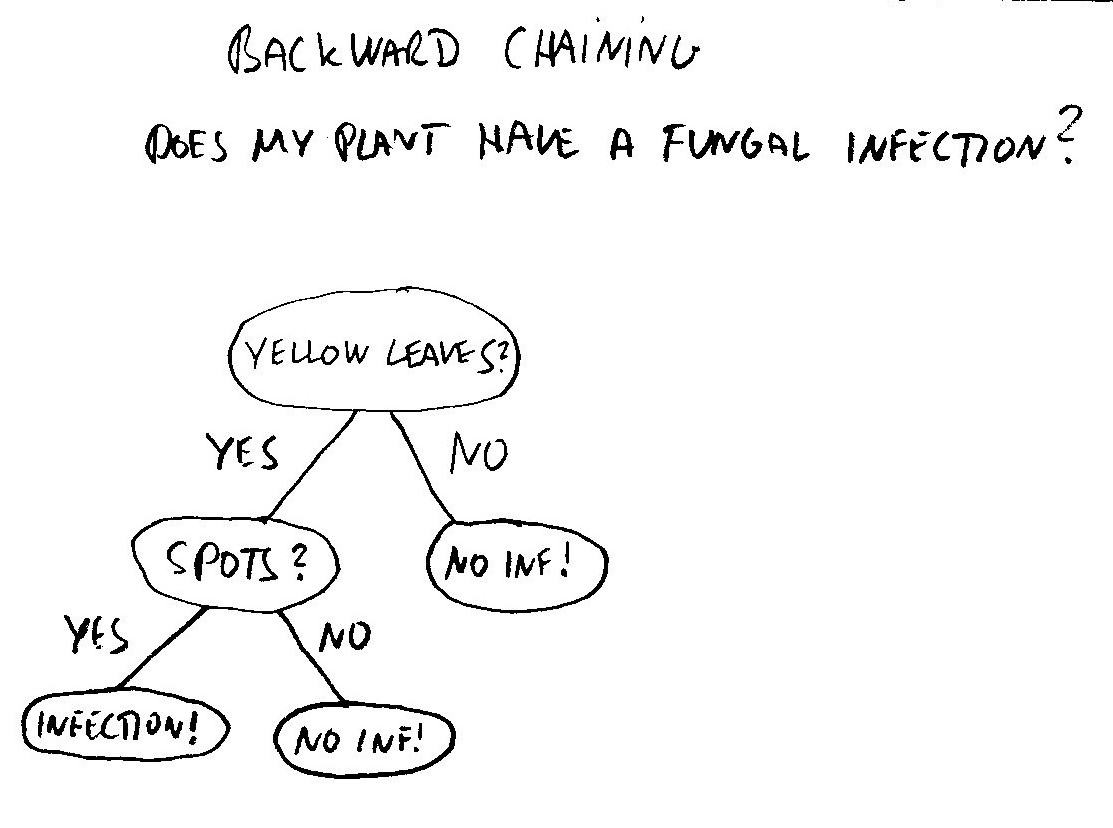 BACKWARD CHAINING
DOES MY PLANT HAVE A FUNGAL INFECTION?
YELLOW LEAVES?
YES
NO
SPOTS?
NO INF!
YES
NO
INFECTION!
NO INF!